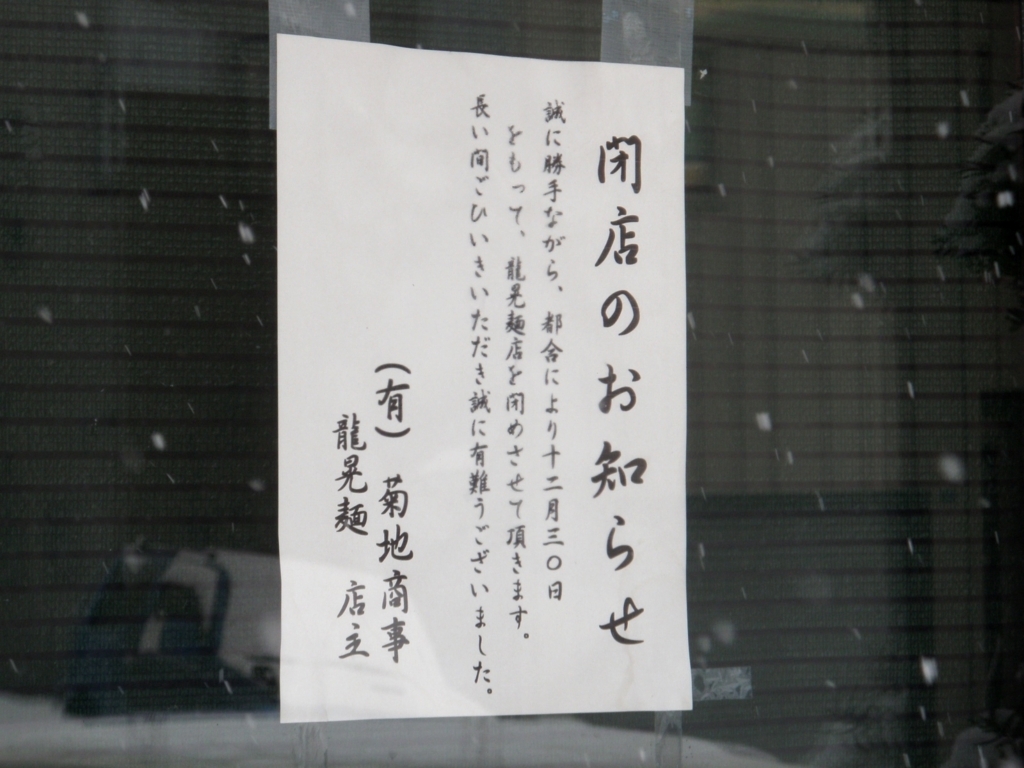 閉店のお知らせ
誠に勝手ながら、都合により十二月三〇日
をもって、龍晃麺店を閉めさせて頂きます。
長い間ごひいきいただき誠に有難うございました。
(有) 菊地商事
龍晃麺 店主